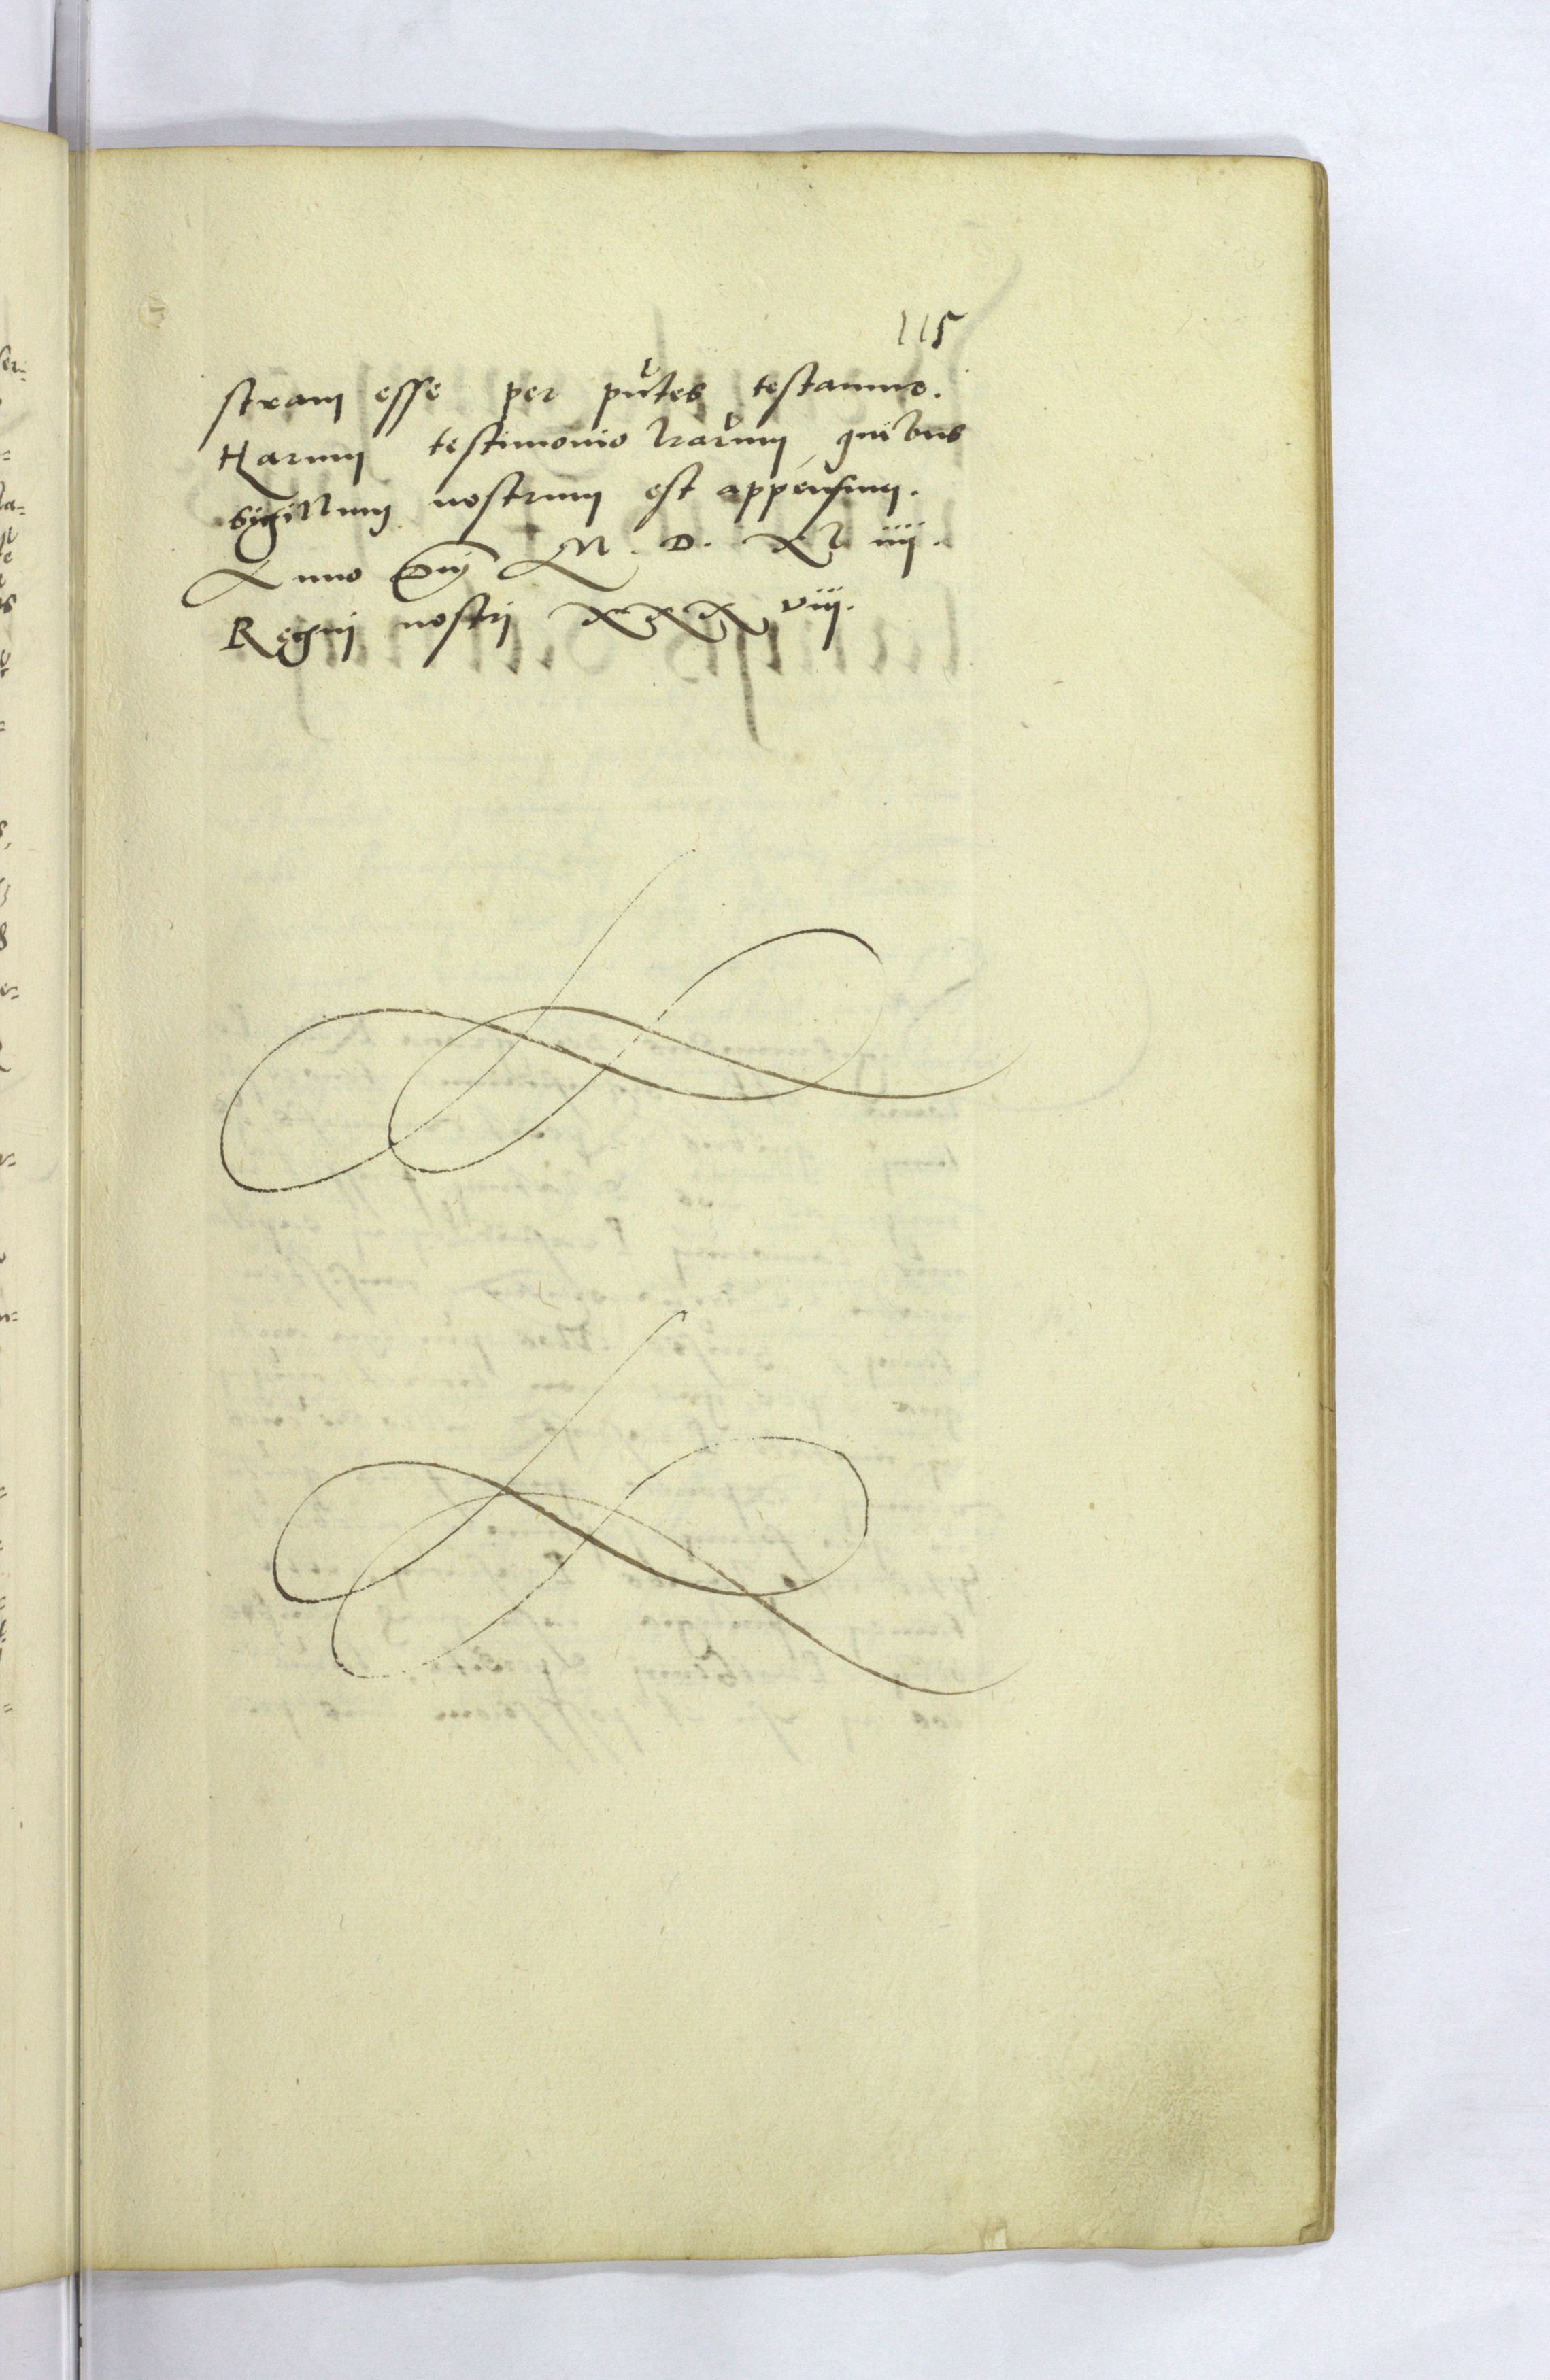 115
stram esse per pntes testamur.
Harum testimonio lrarum, quibus
sigillum nostrum est appensum.
Anno Dnj M. D. XL iiij.
Regnj nostrj XXX viij.